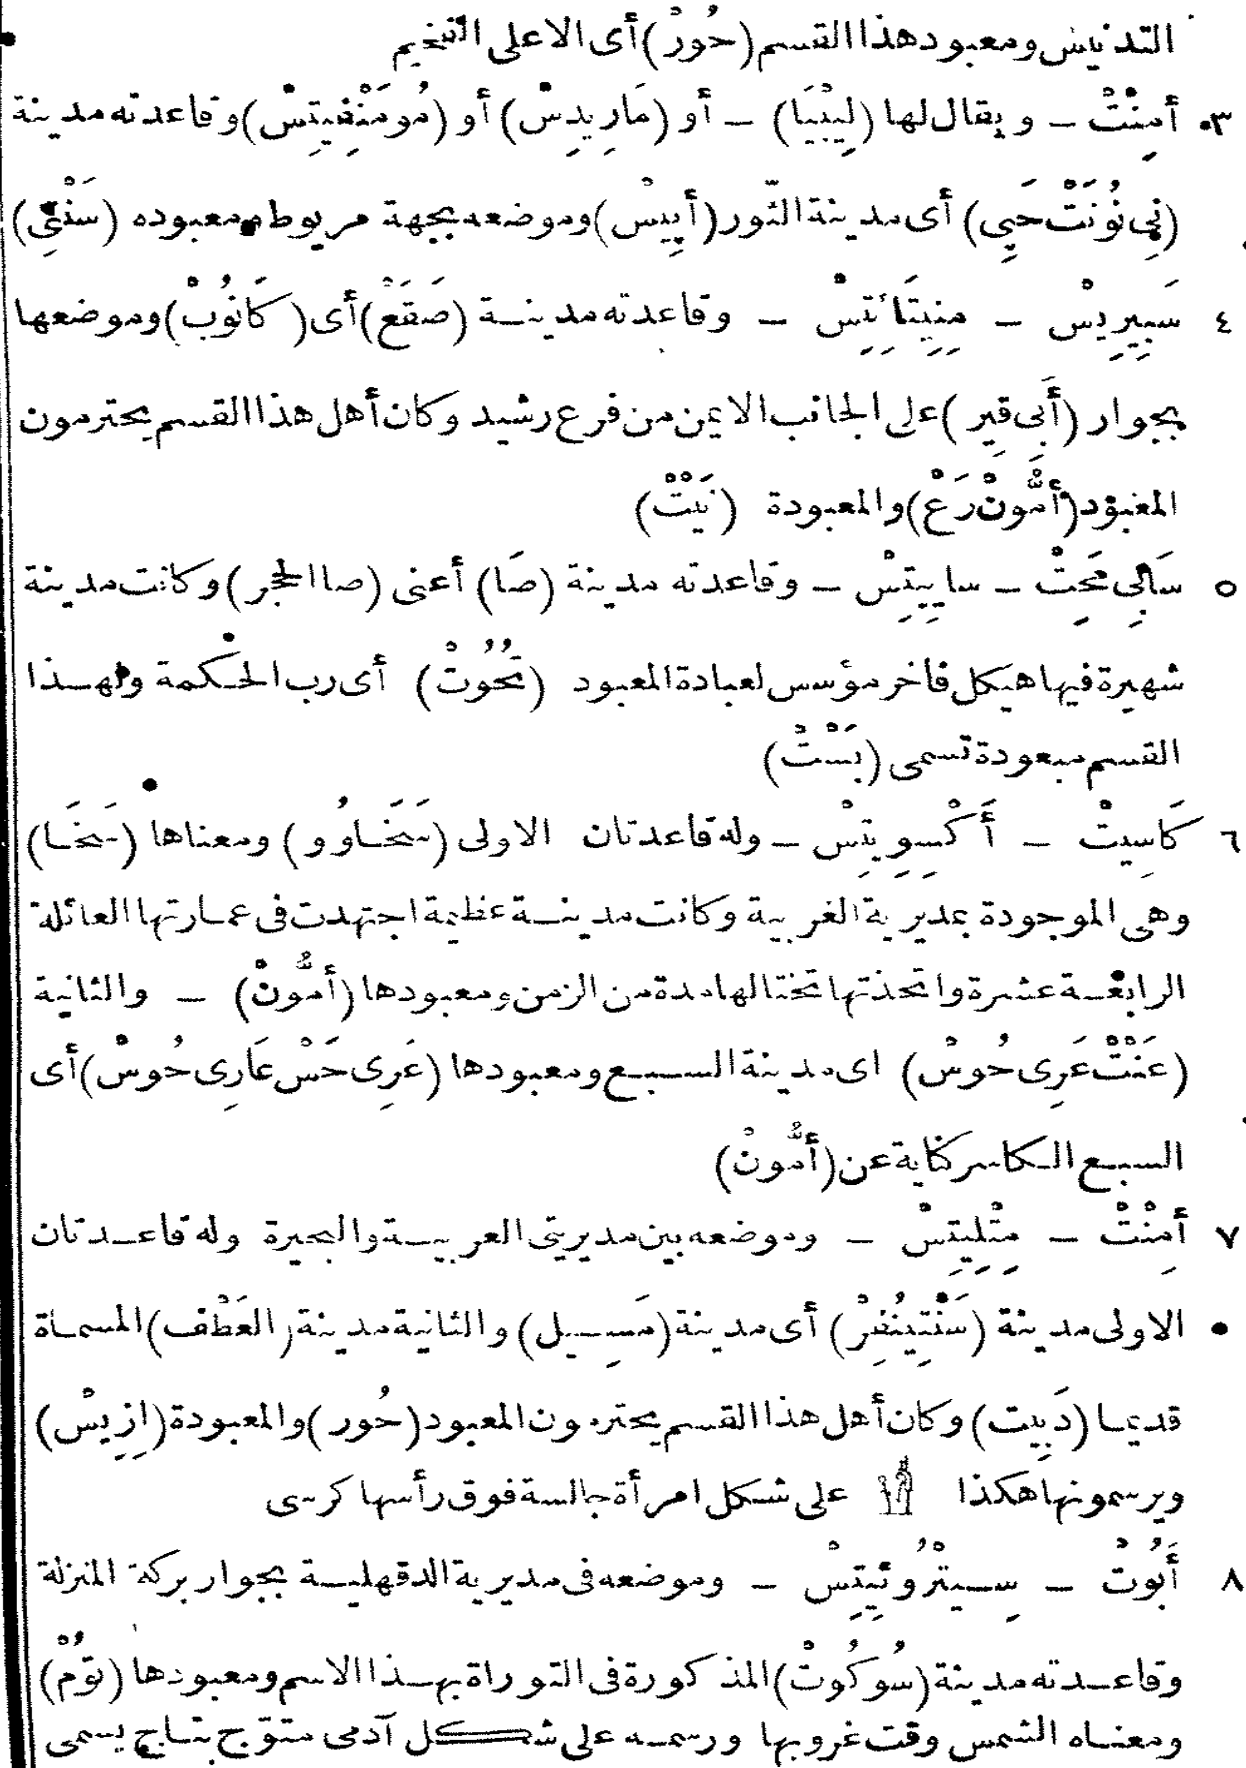 التدنيس ومعبود هذا القسم (حُورْ) أى الاعلى الفخيم
٣ أَمِنْتْ ـ ويقال لها (لِيبْيَا) ـ أو (مَارِيدِسْ) أو (مُومَنْفِيتِسْ) وقاعدته مدينة
(نِى نُونَتْ حَپِى) أى مدينة الثّور (أَپِيسْ) وموضعه بجهة مريوط ومعبوده (سَنْتِى)
٤ سَبِيرِيسْ ـ مِنِيتَائِتِسْ ـ وقاعدته مدينة (صَقَعْ) أى (كَانُوبْ) وموضعها
بجوار (أَبى قِير) على الجانب الايمن من فرع رشيد وكان أهل هذا القسم يحترمون
المعبود (أَمُّونْ رَعْ) والمعبودة (نَيْتْ)
٥ سَاپِى مَحِتْ ـ سايِيتِسْ ـ وقاعدته مدينة (صَا) أعنى (صا الحجر) وكانت مدينة
شهيرة فيها هيكل فاخر مؤسس لعبادة المعبود (تحُوُتْ) أى رب الحكمة ولهذا
القسم مبعودة تسمى (بَسْتْ)
٦ كَاسِيتْ ـ أَكْسِويتِسْ ـ وله قاعدتان الاولى (سَخَاوُو) ومعناها (سَخَا)
وهى الموجودة بمديرية الغربية وكانت مدينة عظيمة اجتهدت فى عمارتها العائلة
الرابعة عشرة واتخذتها تختا لها مدة من الزمن ومعبودها (أَمُّونْ) ـ والثانية
(عَنْتْ عَرِى حُوسْ) اى مدينة السبع ومعبودها (عَرِى حَسْ عَارِى حُوسْ) أى
السبع الكاسر كناية عن (أَمُّونْ)
٧ أَمِنْتْ ـ مِتْلِيتِسْ ـ وموضعه بين مديريتى العربية والبحيرة وله قاعدتان
الاولى مدينة (سَنْتِينُفِرْ) أى مدينة (مَسِيل) والثانية مدينة (العَطْف) المسماة
قديما (دَبِيت) وكان أهل هذا القسم يحترمون المعبود (حُور) والمعبودة (اِزِيسْ)
ويرسمونها هكذا على شكل امرأة جالسة فوق رأسها كرسى
٨ أَبُوتْ ـ سِيتْرُوئِيتِسْ ـ وموضعه فى مديرية الدقهلية بجوار بركة المنزلة
وقاعدته مدينة (سُوكُوتْ) المذكورة فى التوراة بهذا الاسم ومعبودها (تؤُمْ)
ومعناه الشمس وقت غروبها ورسمه على شكل آدمى متوّج بتاج يسمى